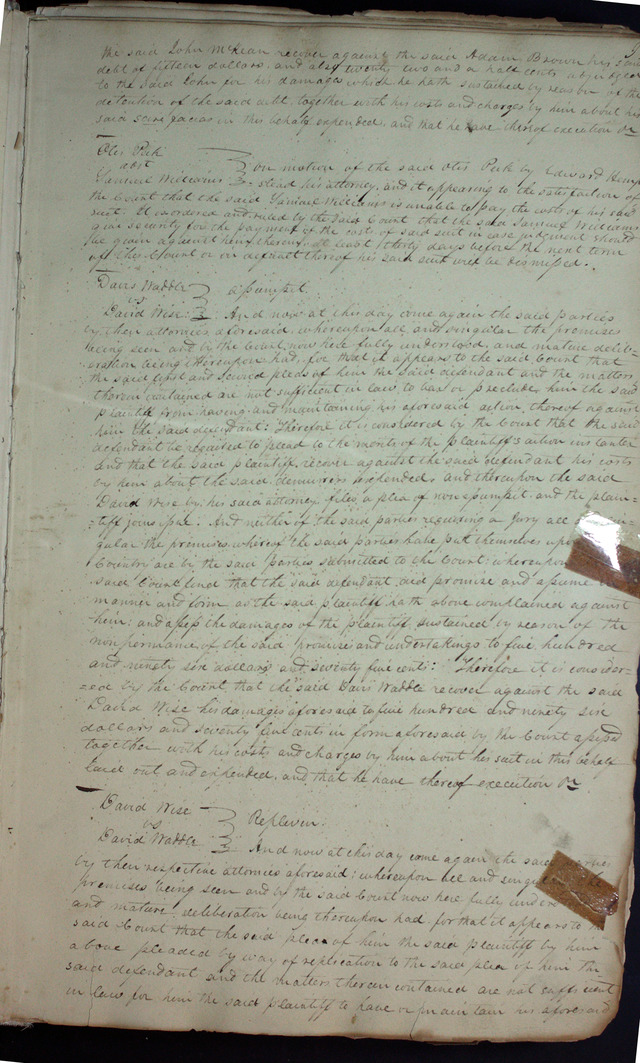 the said John McKean recover against the said Adam Brown his said
debt of fifteen dollars, and also twenty two and a half cents adjudged
to the said John for his damages which he hath sustained by reason of the
detention of the said debt, together with his costs and charges by him about his
said scire facias in this behalf expended, and that he have thereof execution &c
Otis Peck
advt
Samuel Williams } on motion of the said Otis Peck by Edward
his attorney, and it appearing to the satisfaction of
the Court that the said Samuel Williams is unable to pay the costs of his said
suit. It is ordered and ruled by the said Court that the said Samuel Williams
give security for the payment of the costs of said suit in case judgment should
be given against him therein, at least thirty days before the next term
of this Court or on default thereof his said suit will be dismissed.
Davis Waddle
vs } Assumpsit
David Wise. And now at this day come again the said parties
by their attornies aforesaid, whereupon all and singular the premises
being seen and by the Court now here fully understood, and mature delib-
eration being thereupon had, for that it appears to the said Court that
the said first and second pleas of him the said defendant and the matters
therein contained are not sufficient in law to bar or preclude him the said
plaintiff from having and maintaining his aforesaid action, thereof against
him the said defendant: Therefore it is considered by the Court that the said
defendant be required to plead to the merits of the plaintiff's action instanter
and that the said plaintiff recover against the said defendant his costs
by him about the said demurrers expended; and thereupon the said
David Wise by his said attorney files a plea of non assumpsit and the plain-
=tiff joins issue. And neither of the said parties requiring a Jury all
gular the premises whereof the said parties have put themselves upon
Country are by the said Parties submitted to the Court: whereupon
said Court find that the said defendant did promise and assume in
manner and form as the said plaintiff hath above complained against
him: and assess the damages of the plaintiff sustained by reason of the
non performance of the said promises and undertakings to five hundred
and ninety six dollars and seventy five cents: Therefore it is consider-
=ed by the Court, that the said Davis Waddle recover against the said
David Wise his damages aforesaid to five hundred and ninety six
dollars and seventy five cents in form aforesaid by the Court assessed
together with his costs and charges by him about his suit in this behalf
laid out and expended, and that he have thereof execution &c
David Wise
vs } Replevin.
David Waddle } And now at this day come again the said parties
by their respective attornies aforesaid; whereupon all and
premises being seen and by the said Court now here fully
and mature deliberation being thereupon had, for that it appears to the
said Court that the said plea of him the said plaintiff by him
above pleaded by way of replication to the said plea of him the
said defendant and the matters therein contained are not sufficient
in law for him the said plaintiff to have or maintain his aforesaid